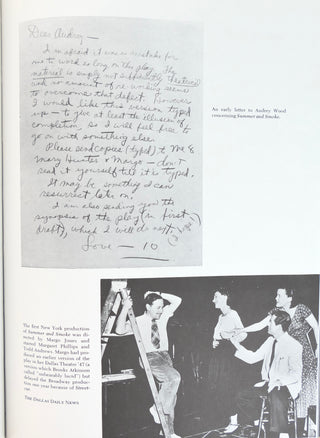 Dear Audrey —
I'm afraid it was a mistake for
me to work so long on this play. The
material is simply not sufficiently theatrical
and no amount of re-working seems
to overcome that defect. However
I would like this version typed
up — to give at least the illusion of
completion, so I will feel free to
go on with something else.
Please send copies (typed) to me &
Mary Hunter & Margo — don't
read it yourself till it is typed.
It may be something I can
resurrect later on.
I am also sending you the
synopsis of the play (in first
draft), which I will do next.
Love — 10
An early letter to Audrey Wood
concerning Summer and Smoke.
The first New York production
of Summer and Smoke was di-
rected by Margo Jones and
starred Margaret Phillips and
Todd Andrews. Margo had pro-
duced an earlier version of the
play in her Dallas Theatre '47 (a
version which Brooks Atkinson
called "unbearably lucid") but
delayed the Broadway produc-
tion one year because of Street-
car.
THE DALLAS DAILY NEWS